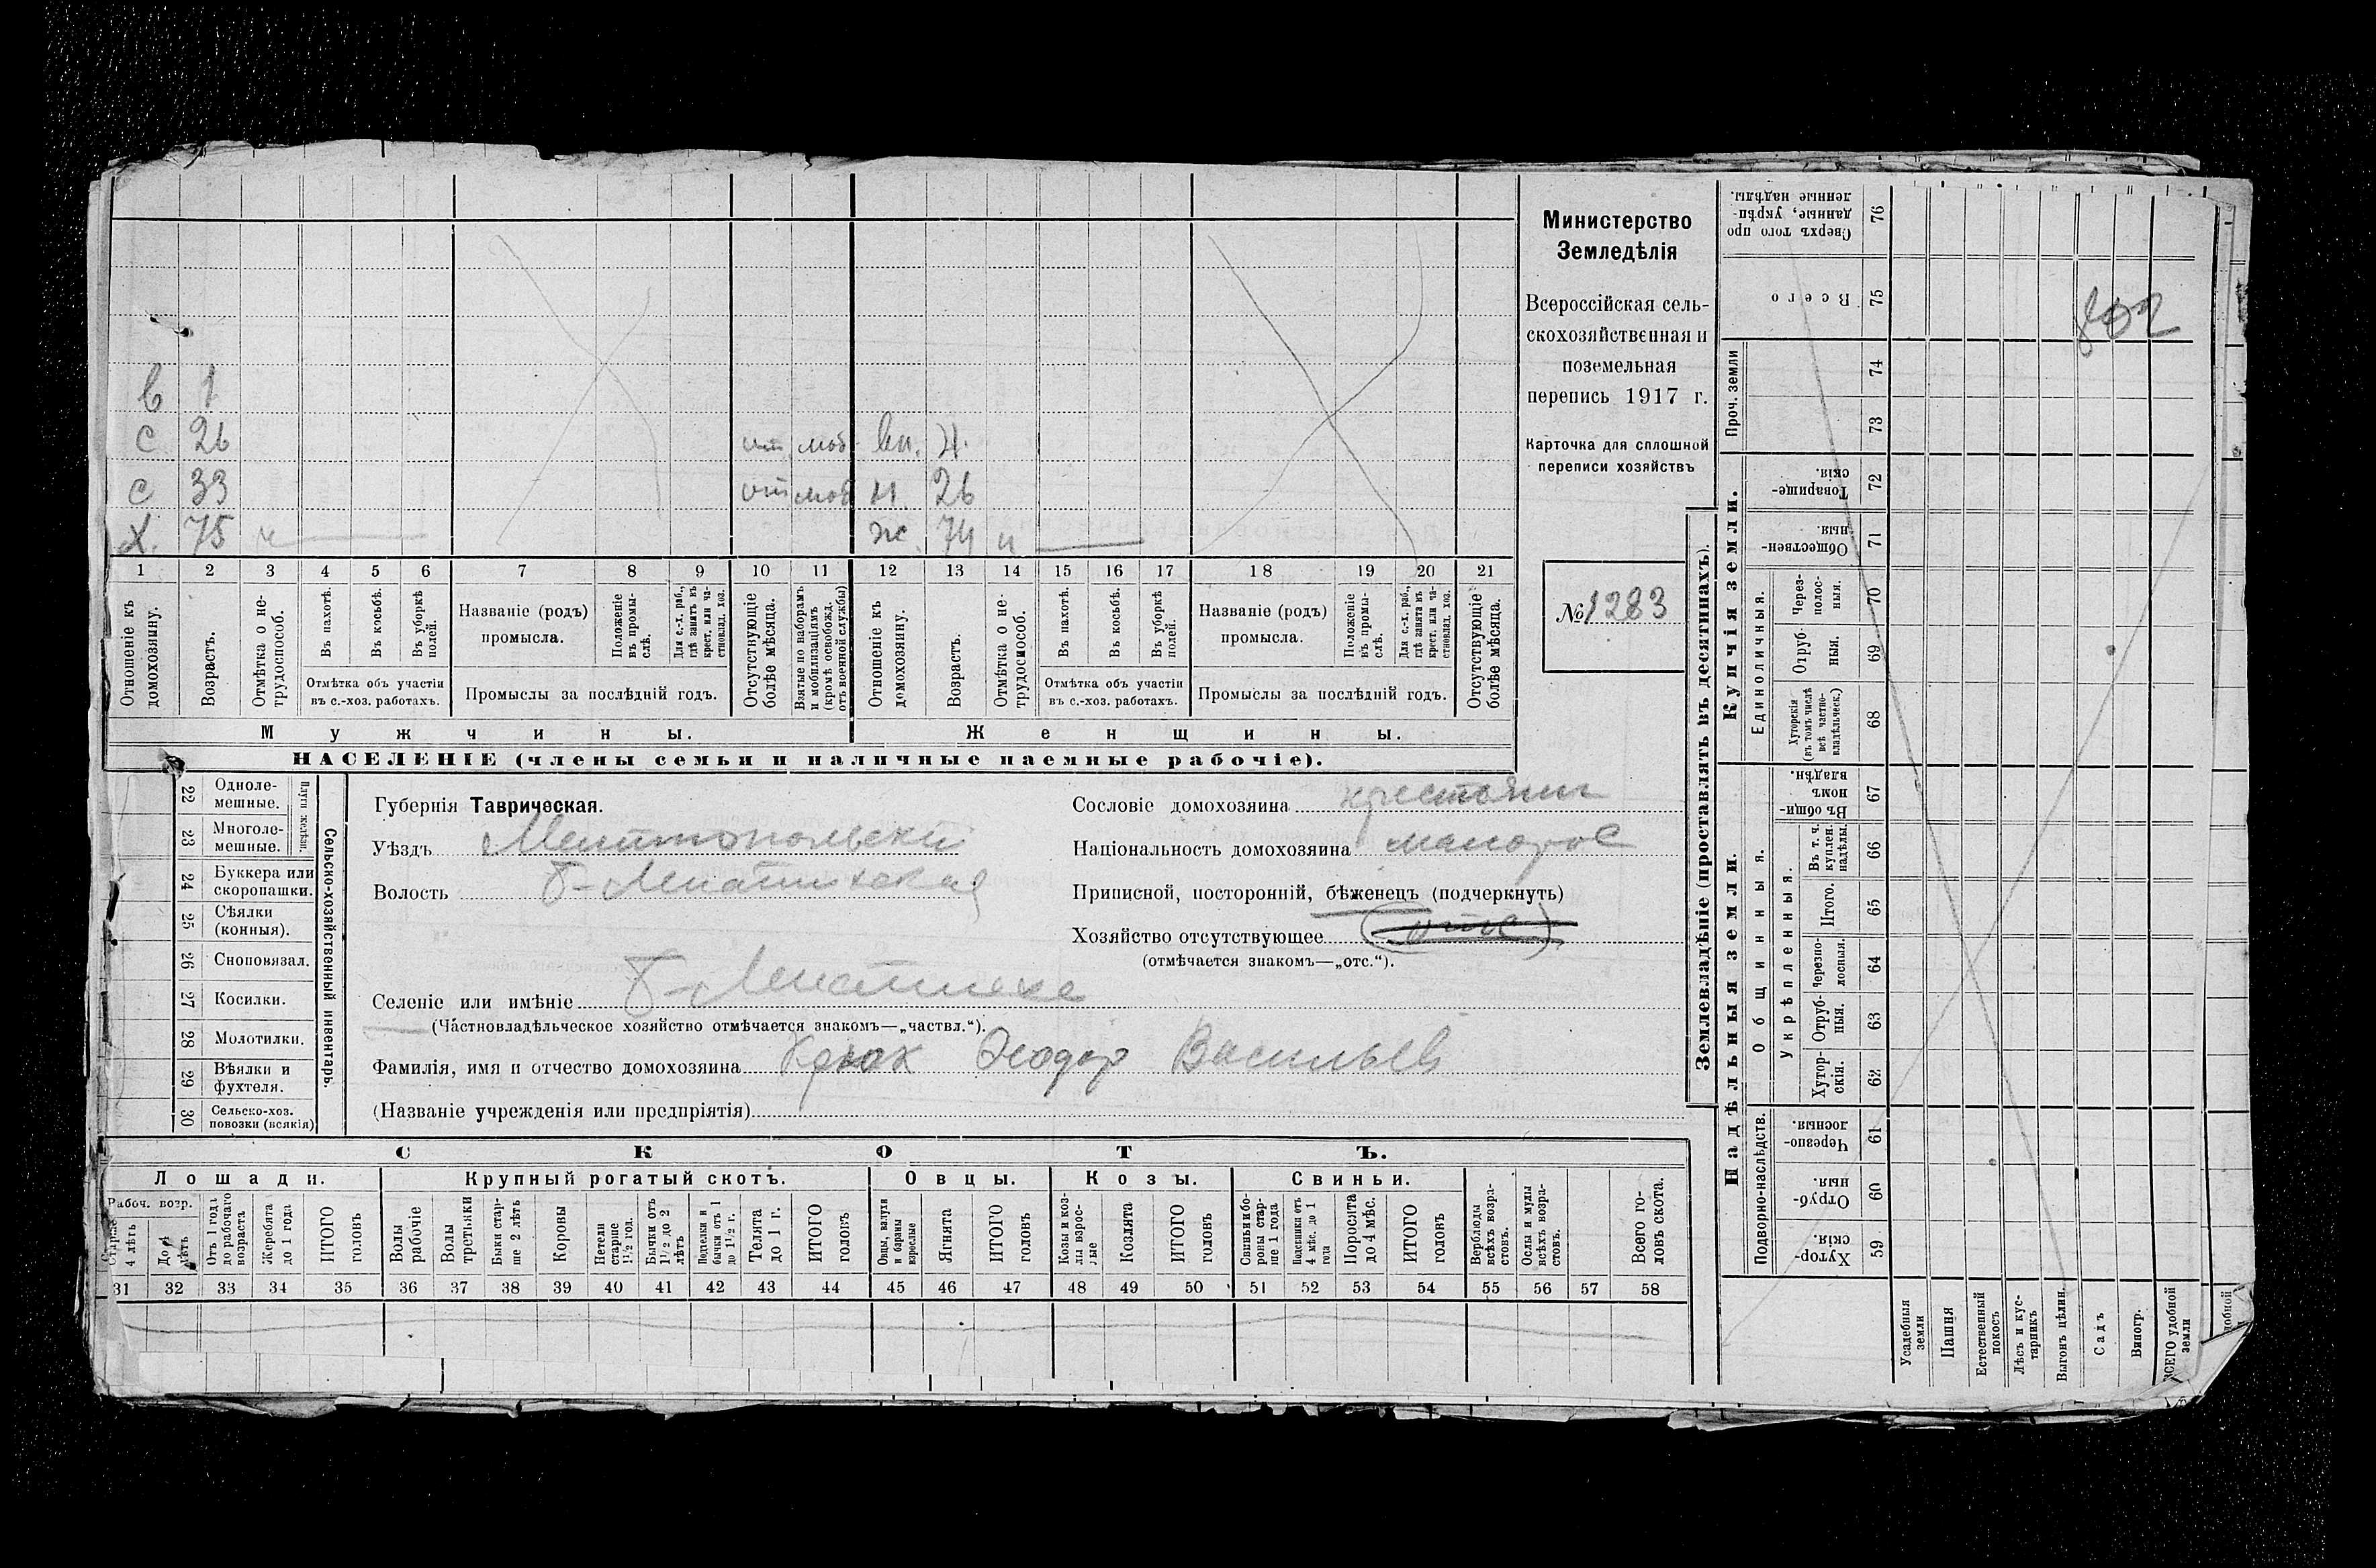 в 1
с 26 от. моб. вн. 4.
с 33 от моб н. 26
х. 75 н ж. 74 н
1 2 3 4 5 6 7 8 9 10 11 12 13 14 15 16 17 18 19 20 21
Отношеніе къ домохозяину.
Возрастъ.
Отмѣтка о нетрудоспособ.
Въ пахотѣ.
Въ косьбѣ.
Въ уборкѣ полей.
Отмѣтка объ участіи
въ с.-хоз. работахъ.
Названіе (родъ)
промысла.
Положеніе въ промыслѣ.
Для с.-х. раб., гдѣ занятъ въ крест. или частновлад. хоз.
Промыслы за послѣдній годъ.
Отсутствующіе болѣе мѣсяца.
Взятые по наборамъ и мобилизаціямъ (кромѣ освобожд. отъ военной службы)
Отношеніе къ домохозяину.
Возрастъ.
Отмѣтка о нетрудоспособ.
Въ пахотѣ.
Въ косьбѣ.
Въ уборкѣ полей.
Отмѣтка объ участіи
въ с.-хоз. работахъ.
Названіе (родъ)
промысла.
Положеніе въ промыслѣ.
Для с.-х. раб., гдѣ занята въ крест. или частновлад. хоз.
Промыслы за послѣдній годъ.
Отсутствующіе болѣе мѣсяца.
Мужчины. Женщины.
НАСЕЛЕНІЕ (члены семьи и наличные наемные рабочіе).
Министерство
Земледѣлія
Всероссійская сель-
скохозяйственная и
поземельная
перепись 1917 г.
Карточка для сплошной
переписи хозяйствъ
№ 1283
22 Одноле-
мешные.
23 Многоле-
мешные.
Плуги желѣзн.
24 Буккера или
скоропашки.
25 Сѣялки
(конныя).
26 Сноповязал.
27 Косилки.
28 Молотилки.
29 Вѣялки и
фухтеля.
30 Сельско-хоз.
повозки (всякія)
Сельско-хозяйственный инвентарь.
Губернія Таврическая.
Уѣздъ Мелитопольский
Волость Б-Лепатихская
Селеніе или имѣніе Б-Лепатиха
(Частновладѣльческое хозяйство отмѣчается знакомъ—„частвл.“).
Фамилія, имя и отчество домохозяина Крюк Ѳеодор Васильев
(Названіе учрежденія или предпріятія)
Сословіе домохозяина крестянин
Національность домохозяина малорос
Приписной, посторонній, бѣженецъ (подчеркнуть)
Хозяйство отсутствующее отс
(отмѣчается знакомъ—„отс.“).
СКОТЪ.
Лошади. Крупный рогатый скотъ. Овцы. Козы. Свиньи.
Рабоч. возр.
Старше 4 лѣтъ
До 4 лѣтъ
Отъ 1 года до рабочаго возраста
Жеребята до 1 года
ИТОГО головъ
Волы рабочіе
Волы третьяки
Быки старше 2 лѣтъ
Коровы
Нетели старше 1½ год.
Бычки отъ 1½ до 2 лѣтъ
Подтелки и бычки отъ 1 до 1½ г.
Телята до 1 г.
ИТОГО головъ
Овцы, валухи и бараны взрослые
Ягнята
ИТОГО головъ
Козы и козлы взрослые
Козлята
ИТОГО головъ
Свиньи и боровы старше 1 года
Подсвинки отъ 4 мѣс. до 1 года
Поросята до 4 мѣс.
ИТОГО головъ
Верблюды всѣхъ возрастовъ.
Ослы и мулы всѣхъ возрастовъ.
Всего головъ скота.
31 32 33 34 35 36 37 38 39 40 41 42 43 44 45 46 47 48 49 50 51 52 53 54 55 56 57 58
Землевладѣніе (проставлять въ десятинахъ).
Надѣльныя земли. Купчія земли.
Сверхъ того проданные, укрѣпленные надѣлы. 76
Всего 75
802
Проч. земли 74
73
Товарищескія. 72
Общественныя. 71
Единоличныя.
Черезполосныя. 70
Отрубныя. 69
Хуторскія (въ томъ числѣ всѣ частновладѣльческ.) 68
Общинныя.
Въ общинномъ владѣн. 67
Укрѣпленныя.
Въ т. ч. куплен. надѣлы. 66
Итого. 65
Черезполосныя. 64
Отрубныя. 63
Хуторскія. 62
Подворно-наслѣдств.
Черезполосныя. 61
Отрубныя. 60
Хуторскія. 59
Усадебныя земли
Пашня
Естественный покосъ
Лѣсъ и кустарникъ
Выгонъ цѣлин.
Садъ
Виногр.
ВСЕГО удобной земли